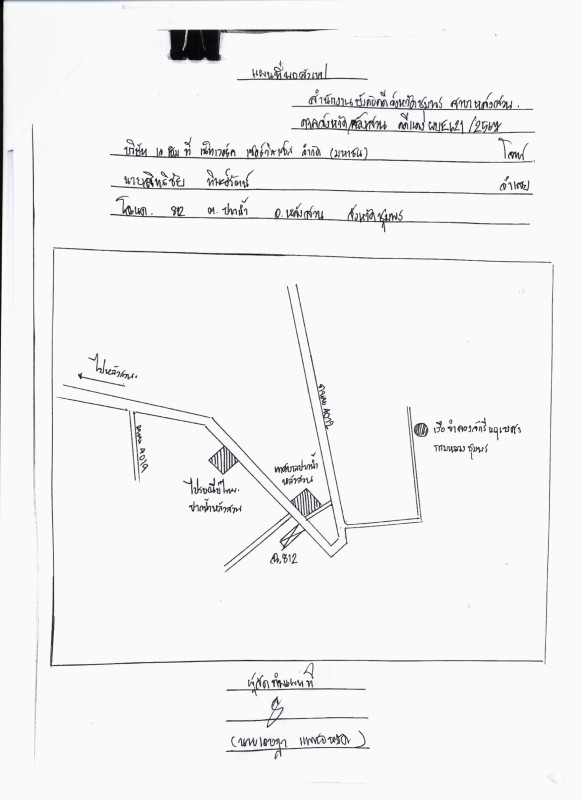 แผนที่พอสังเขป
สำนักงานบังคับคดีจังหวัดชุมพร สาขาหลังสวน
ศาลจังหวัดหลังสวน คดีแดง
บริษัท เอ เอ็ม ที่ เน็ทเวอร์ค เซอร์วิสเซ็ส จำกัด (มหาชน) โจทก์
นายสิทธิชัย จำเลย
โฉนด. 812 ต. ปากน้ำ อ. หลังสวน จังหวัดชุมพร
ไปหลังสวน
ถนน 4019
ถนน 4012
เรือจำลองจักรีนฤเบศร
กรมหลวงชุมพร
เทศบาลปากน้ำ
หลังสวน
ไปรษณีย์ไทย
ปากน้ำหลังสวน
ฉ.812
ผู้จัดทำแผนที่